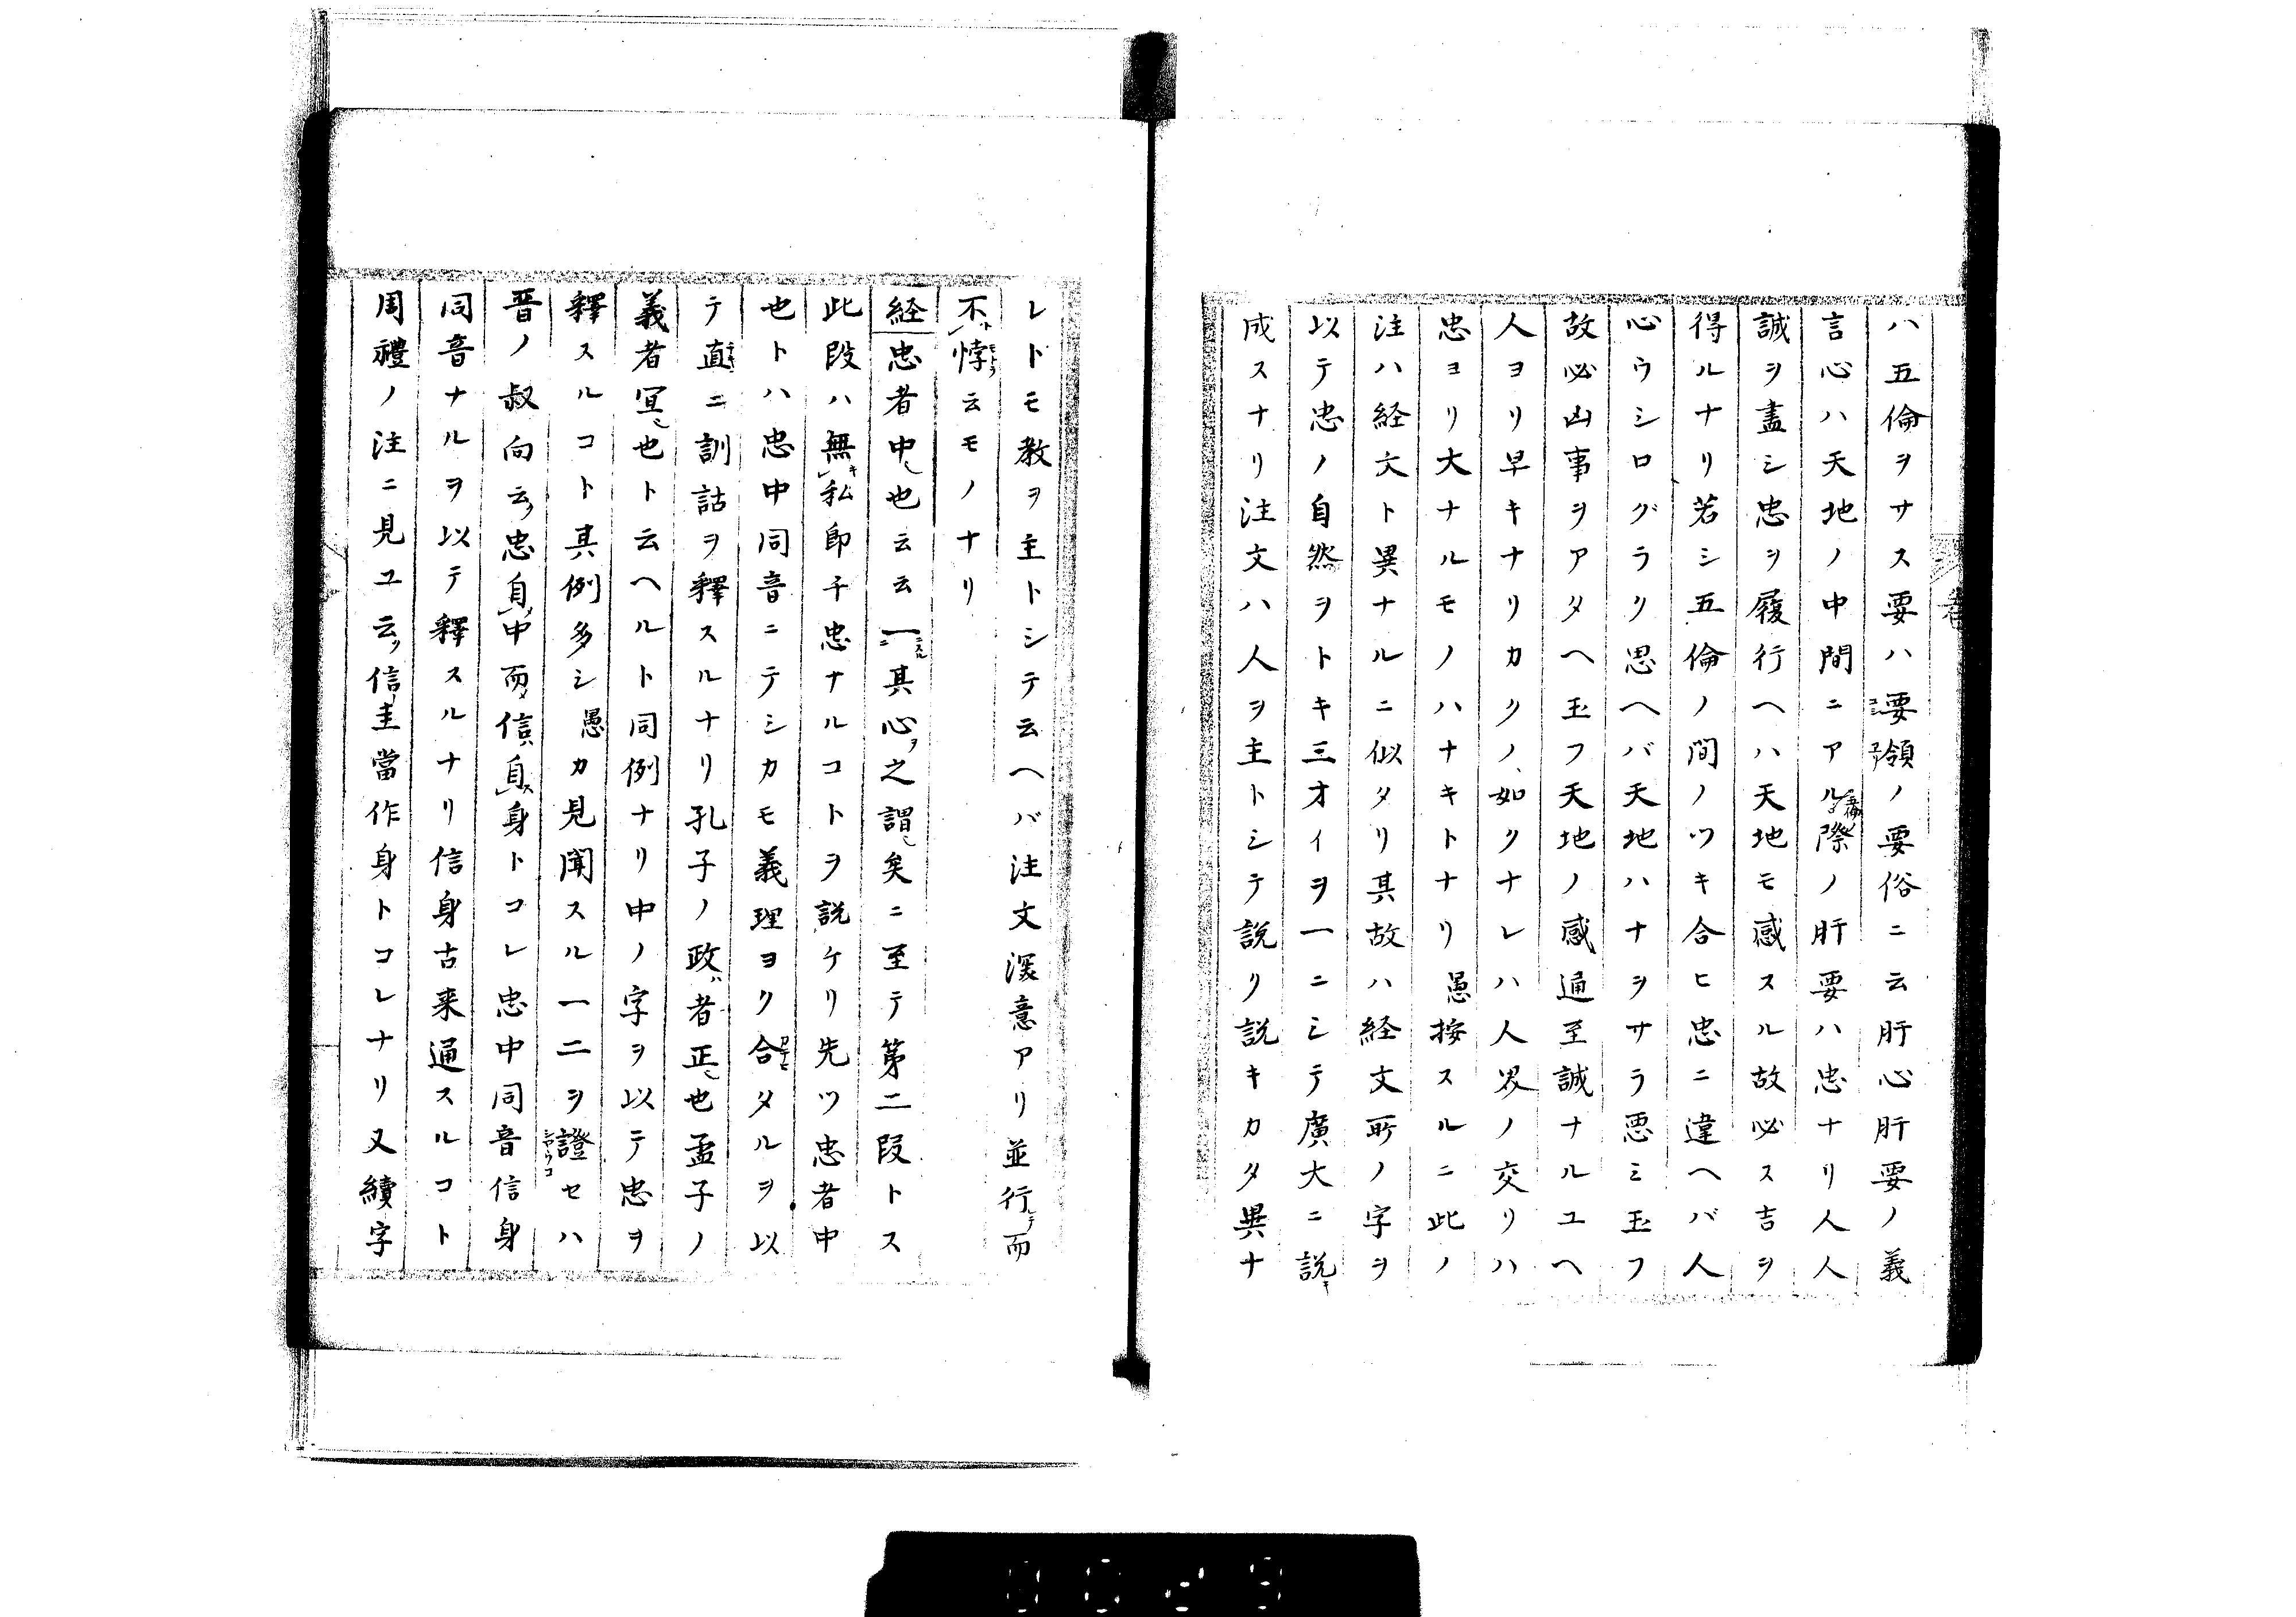 ハ五倫ヲサス要ハ要領ノ要俗ニ云肝心肝要ノ義
言心ハ天地ノ中間ニアル際ノ肝要ハ忠ナリ人人
誠ヲ盡シ忠ヲ履行ヘハ天地モ感スル故必ス吉ヲ
得ルナリ若シ五倫ノ間ノツキ合ヒ忠ニ違ヘバ人
心ウシログラク思ヘバ天地ハナヲサラ悪ミ玉フ
故必凶事ヲアタヘ玉フ天地ノ感通至誠ナルユヘ
人ヨリ早キナリカクノ如クナレハ人界ノ交リハ
忠ヨリ大ナルモノハナキトナリ愚按スルニ此ノ
注ハ経文ト異ナルニ似タリ其故ハ経文所ノ字ヲ
以テ忠ノ自然ヲトキ三才イヲ一ニシテ廣大ニ説キ
成スナリ注文ハ人ヲ主トシテ説リ説キカタ異ナ
レトモ教ヲ主トシテ云ヘバ注文深意アリ並行而
不悖云モノナリ
経忠者中也云云一其心之謂矣ニ至テ第二段トス
此段ハ無私即チ忠ナルコトヲ説ケリ先ツ忠者中
也トハ忠中同音ニテシカモ義理ヨク合タルヲ以
テ直ニ訓詁ヲ釋スルナリ孔子ノ政者正也孟子ノ
義者宜也ト云ヘルト同例ナリ中ノ字ヲ以テ忠ヲ
釋スルコト其例多シ愚カ見聞スル一二ヲ證セハ
晋ノ叔向云忠自中而信自身トコレ忠中同音信身
同音ナルヲ以テ釋スルナリ信身古来通スルコト
周禮ノ注ニ見ユ云信圭當作身トコレナリ又續字